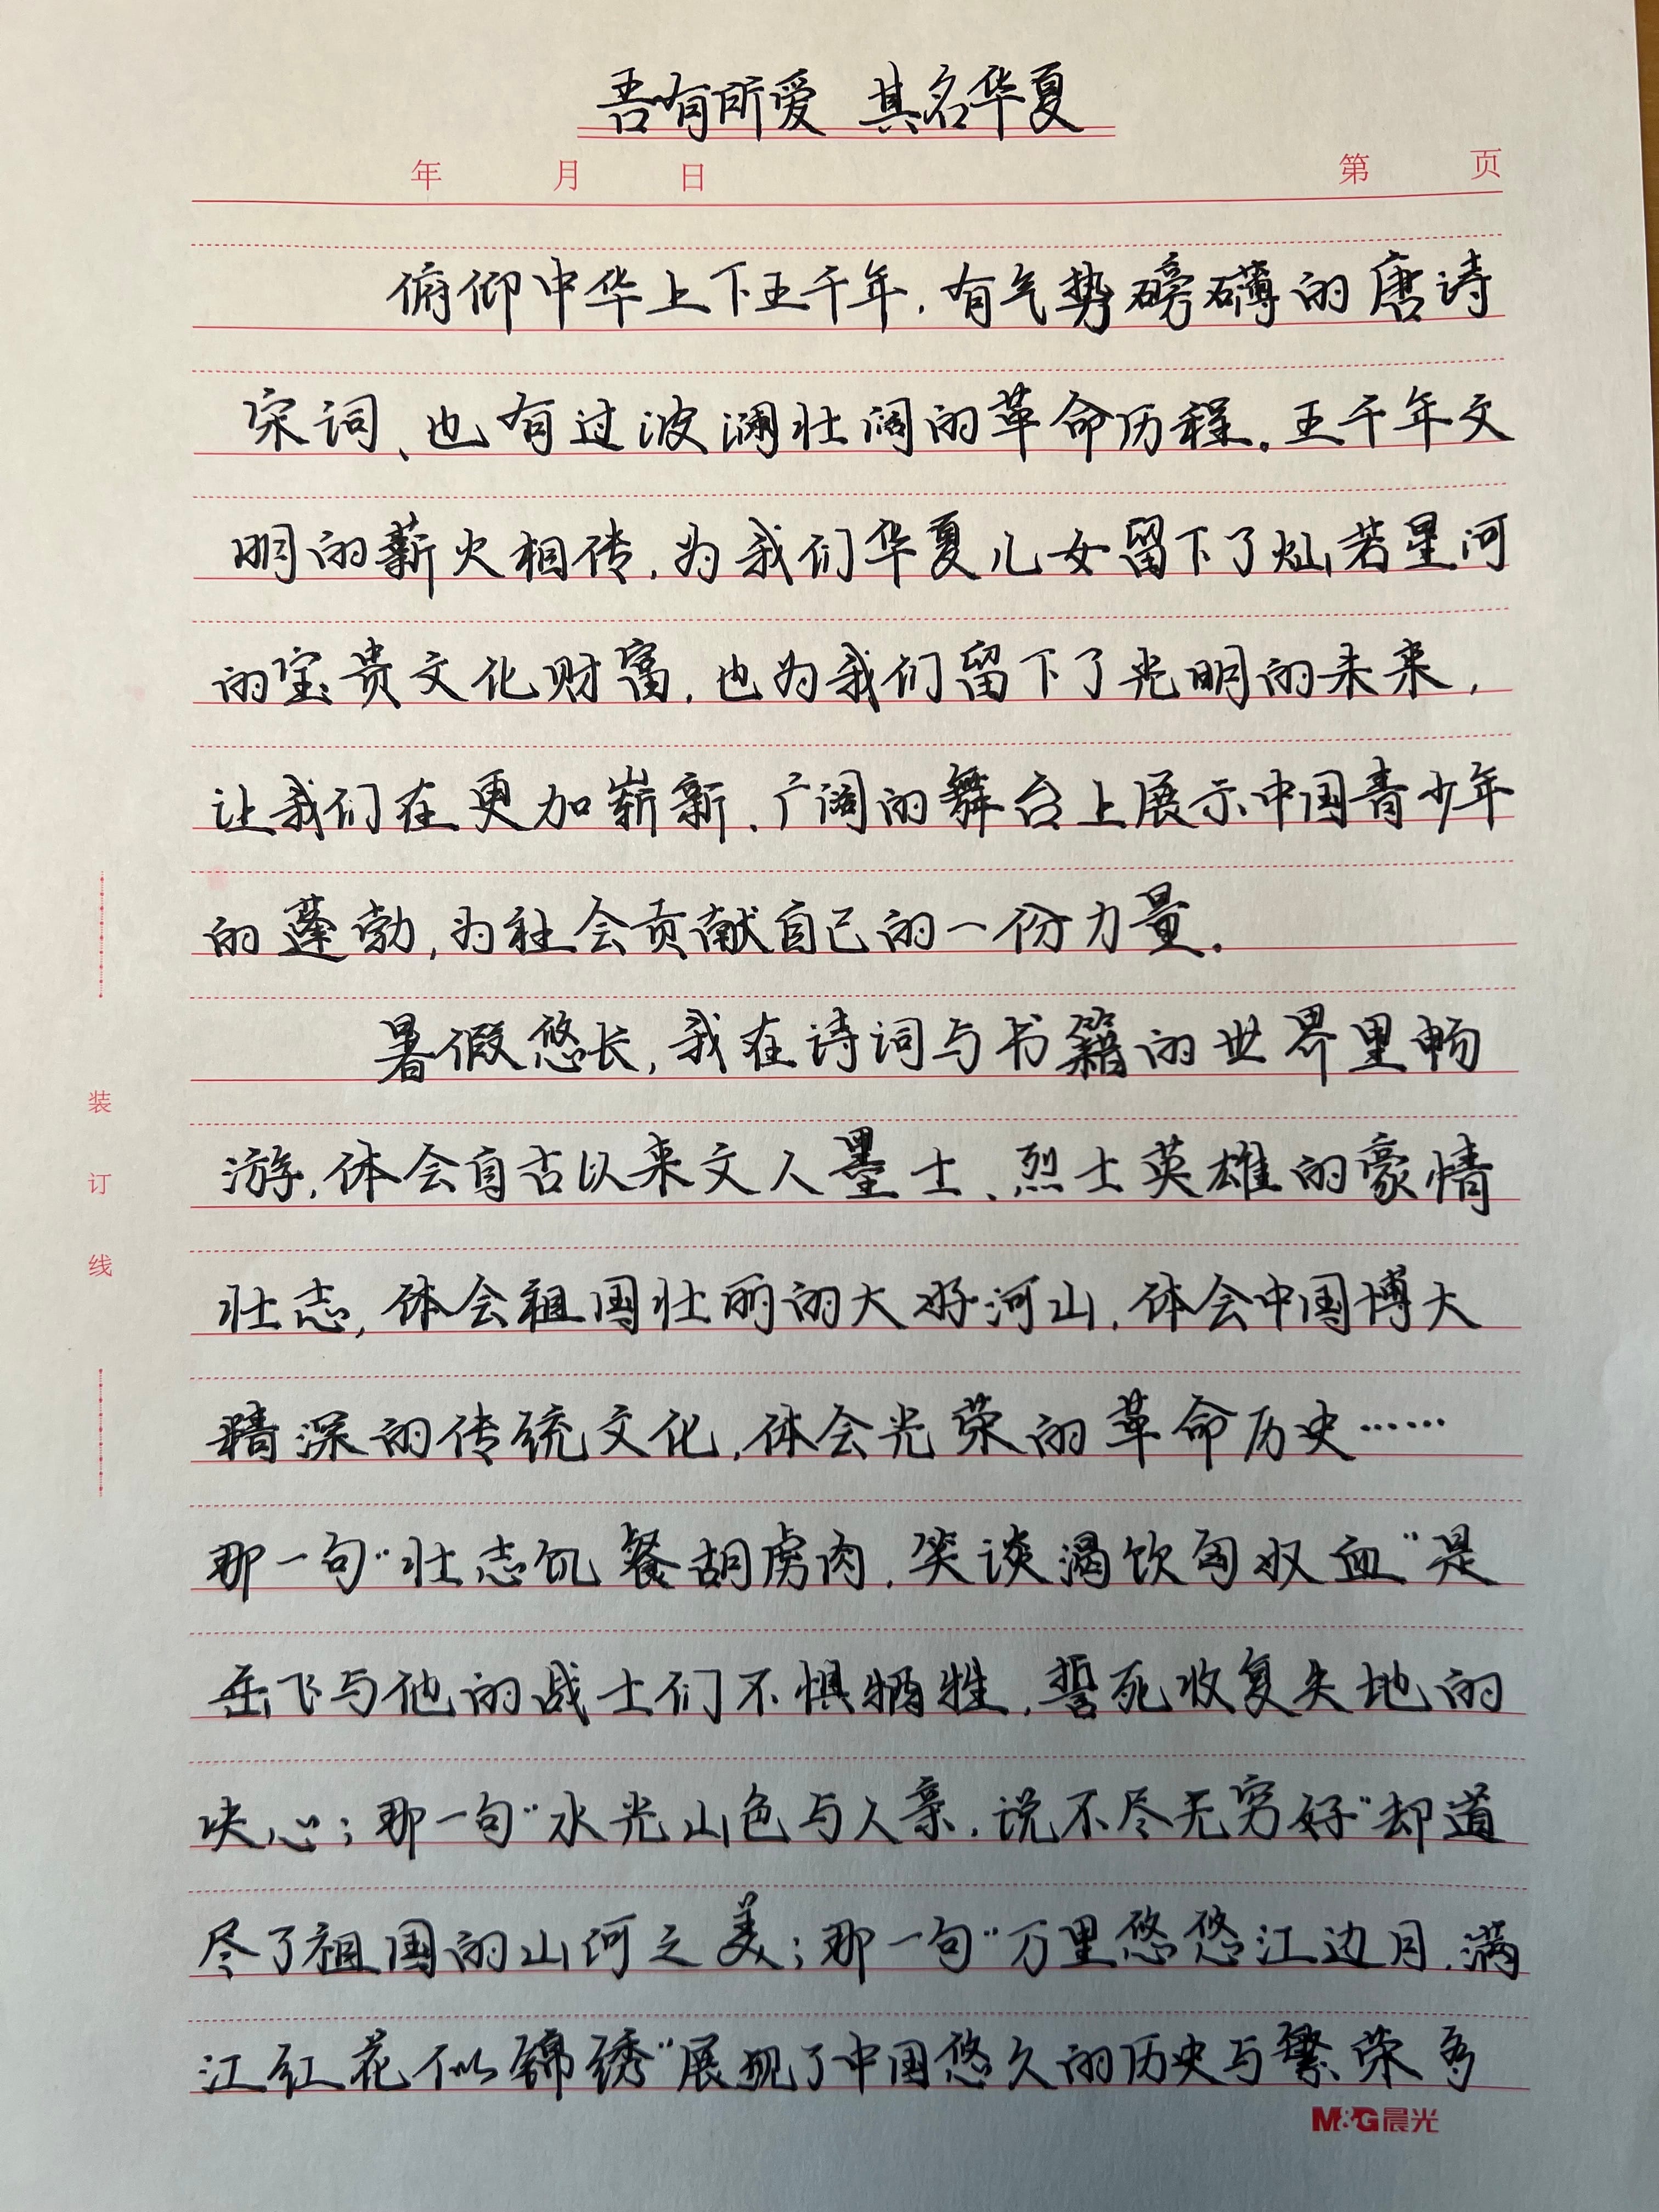 吾有所爱 其名华夏
年 月 日 第 页
俯仰中华上下五千年，有气势磅礴的唐诗
宋词、也有过波澜壮阔的革命历程。五千年文
明的薪火相传，为我们华夏儿女留下了灿若星河
的宝贵文化财富，也为我们留下了光明的未来，
让我们在更加崭新、广阔的舞台上展示中国青少年
的蓬勃，为社会贡献自己的一份力量。
暑假悠长，我在诗词与书籍的世界里畅
游，体会自古以来文人墨士、烈士英雄的豪情
壮志，体会祖国壮丽的大好河山，体会中国博大
精深的传统文化，体会光荣的革命历史……
那一句“壮志饥餐胡虏肉，笑谈渴饮匈奴血”是
岳飞与他的战士们不惧牺牲，誓死收复失地的
决心；那一句“水光山色与人亲，说不尽无穷好”却道
尽了祖国的山河之美；那一句“万里悠悠江边月，满
江红花似锦绣”展现了中国悠久的历史与繁荣多
装
订
线
M&G晨光